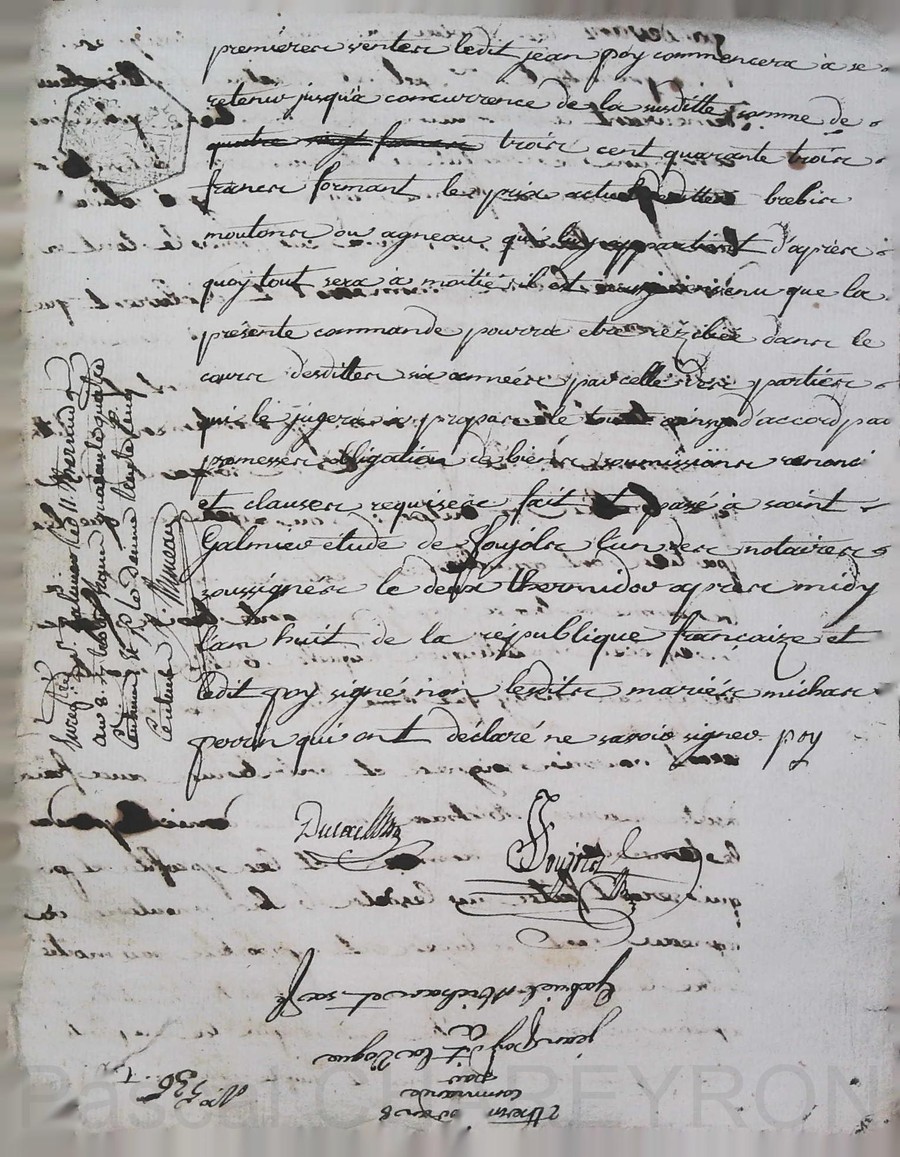 premieres ventes ledit jean poy commencera à se
retenir jusqu'à concurrence de la susditte somme de
quatre vingt francs trois cent quarante trois
francs formant le prix actuel desdittes brebis
moutons ou agneau qui luy appartient d'apres
quoy tout sera à moitiés il est convenu que la
presente commande pourra etre rezilieé dans le
cours desdittes six années par celle des parties
qui le jugera à propos de tout ainsy d'accord par
promesses obligation de biens soumissions renonci
et clauses requises fait et passé à saint
Galmier etude de Joujols l'un des notaires
soussignés le deux thermidor apres midy
l'an huit de la république françaize et
ledit poy signé non lesdits mariés michas
perrin qui ont déclaré ne savoir signer. poy
Enregistré à St Galmier le 11 thermidor
an 8. reçu trois francs quarante quatre
centimes et le dixieme trente cinq
centimes
gabriel Michas et sa fe
à
jean poy dit la vogue
par
commande
2 therm an 8
No 536
Pascal Ch PEYRON